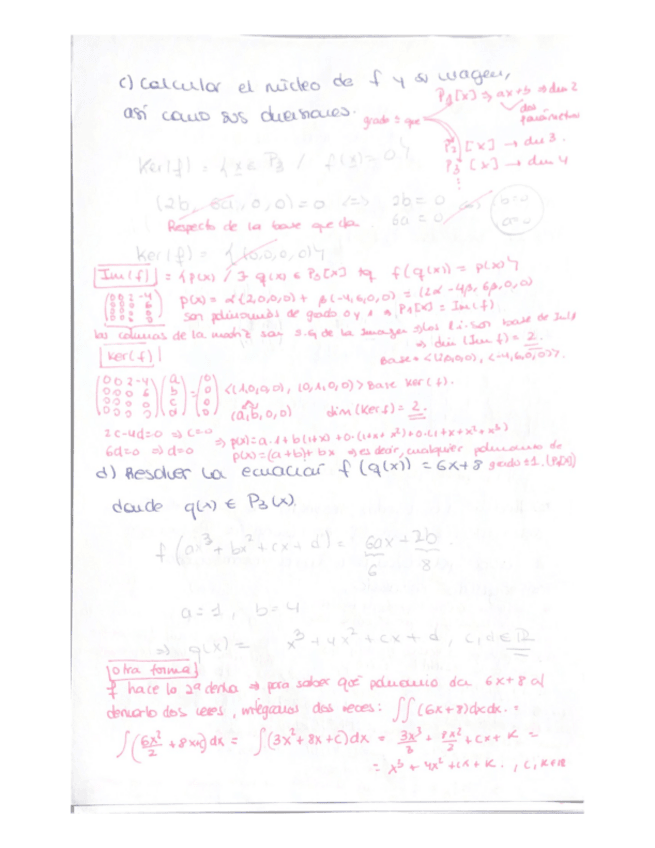 c) Calcular el núcleo de f y su imagen,
así como sus dimensiones.
P1[x] => ax+b => dim 2
dos
parámetros
grado ≤ que
P2[x] → dim 3.
P3[x] → dim 4
Ker(f) = {x ∈ P3 / f(x) = 0}
(2b, 6a, 0, 0) = 0 <=> 2b = 0
6a = 0
b = 0
a = 0
Respecto de la base que da
Ker(f) = {(0,0,0,0)}
Im(f) = {p(x) / ∃ q(x) ∈ P3[x] tq f(q(x)) = p(x)}
(0 0 2 -4
0 0 0 6
0 0 0 0
0 0 0 0)
p(x) = α(2,0,0,0) + β(-4,6,0,0) = (2α - 4β, 6β, 0, 0)
son polinomios de grado 0 y 1 => P1[x] = Im(f)
las columas de la matriz son S.G. de la imagen => los l.i. son base de Imf
=> dim (Imf) = 2.
Base = <(2,0,0,0), (-4,6,0,0)>.
Ker(f)
(0 0 2 -4
0 0 0 6
0 0 0 0
0 0 0 0) (a b c d) = (0 0 0 0)
<(1,0,0,0), (0,1,0,0)> Base Ker(f).
(a,b,0,0) dim(Kerf) = 2.
2c-4d=0 => c=0 => p(x) = a·1+b(1+x)+0·(1+x+x²)+0·(1+x+x²+x³)
6d=0 => d=0 p(x) = (a+b)+bx => es decir, cualquier polinomio de
grado ≤1. (P1[x])
d) Resolver la ecuación f(q(x)) = 6x+8
donde q(x) ∈ P3(x).
f(ax³+bx²+cx+d) = 6ax+2b
6 8
a=1, b=4
=> q(x) = x³+4x²+cx+d, c,d ∈ R
otra forma
f hace la 2ª deriv => para saber qué polinomio da 6x+8 al
derivarlo dos veces, integramos dos veces: ∫∫(6x+8)dxdx. =
∫(6x²/2 + 8x+c)dx = ∫(3x²+8x+c)dx = 3x³/3 + 8x²/2 + cx + K =
= x³+4x²+cx+K., c,K∈R